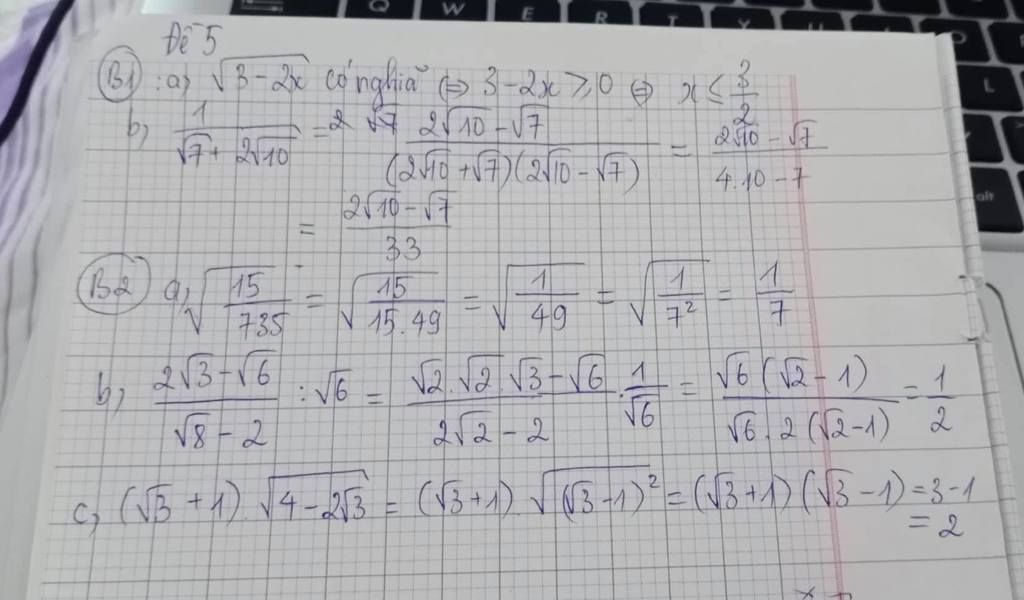 Q W E R T Y
L
alt
Đề 5
B1 : a, √(3 - 2x) có nghĩa ⇔ 3 - 2x ≥ 0 ⇔ x ≤ 3/2
b, 1/(√7 + 2√10) = 2 √7 (2√10 - √7)/((2√10 + √7)(2√10 - √7)) = (2√10 - √7)/(4.10 - 7)
= (2√10 - √7)/33
B2 a, √(15/735) = √(15/(15.49)) = √(1/49) = √(1/7²) = 1/7
b, (2√3 - √6)/(√8 - 2) : √6 = (√2.√2.√3 - √6)/(2√2 - 2) . 1/√6 = (√6(√2 - 1))/(√6.2(√2 - 1)) = 1/2
c, (√3 + 1).√(4 - 2√3) = (√3 + 1).√((√3 - 1)²) = (√3 + 1)(√3 - 1) = 3 - 1
= 2